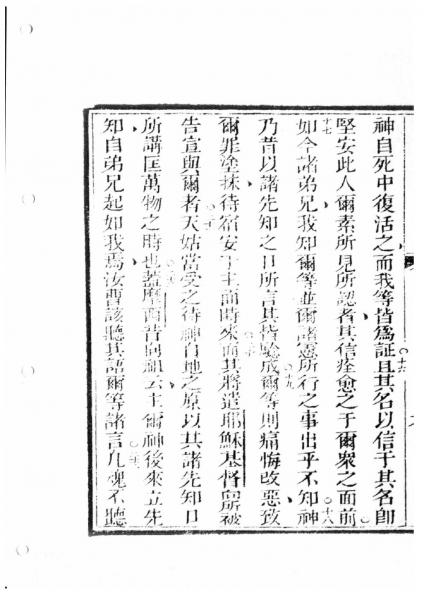 神自死中復活之而我等皆為証且其名以信于其名卽
○十六
堅安此人爾素所見所認者其信痊愈之于爾眾之面前
十七
如今諸弟兄我知爾等並爾諸憲所行之事出乎不知神
○十八
乃昔以諸先知之口所言其皆驗成爾等則痛悔改惡致
○十九
爾罪塗抹待宿安于主面時來而其將遣耶穌基督向所被
○二十
告宣與爾者天姑當受之待神自地之原以其諸先知口
所講匡萬物之時也蓋摩西昔向祖云主爾神後來立先
知自弟兄起如我焉汝曹該聽其語爾等諸言凡魂不聽